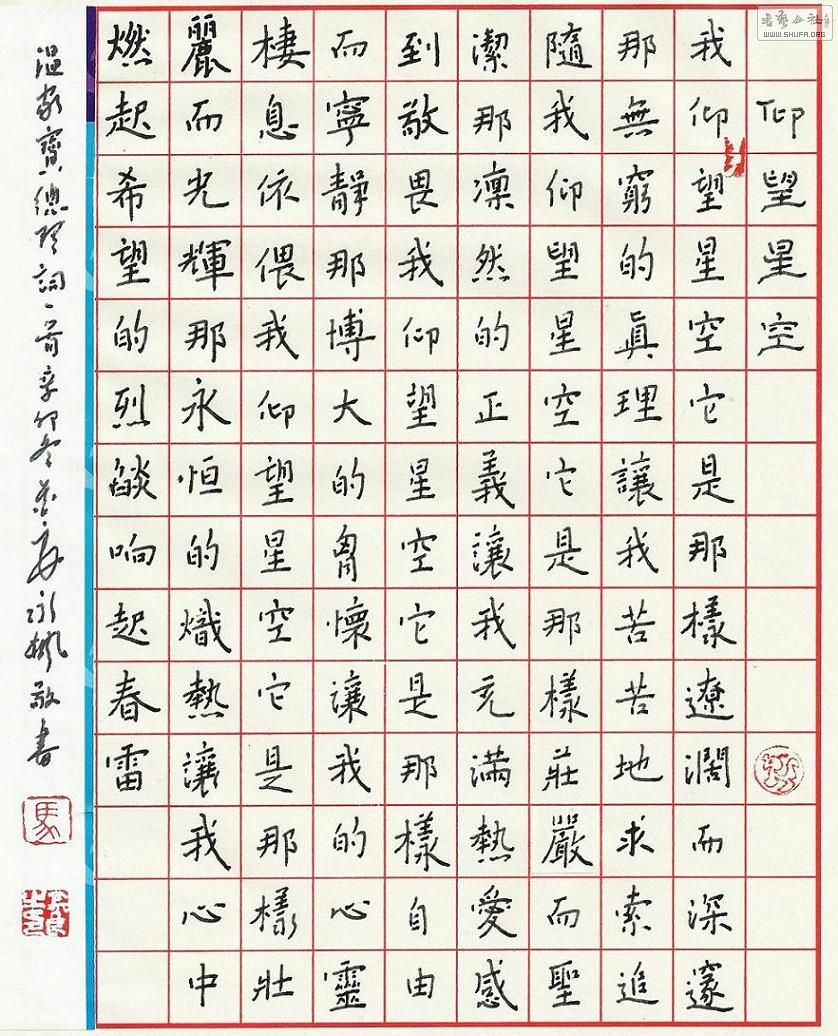 仰望星空
我仰望星空它是那樣遼濶而深邃
那無窮的眞理讓我苦苦地求索追
隨我仰望星空它是那樣莊嚴而聖
潔那凛然的正義讓我充滿熱愛感
到敬畏我仰望星空它是那樣自由
而寧靜那博大的胷懷讓我的心靈
棲息依偎我仰望星空它是那樣壯
麗而光輝那永恒的熾熱讓我心中
燃起希望的烈燄响起春雷
温家寶總理詞一首辛卯冬敬書
馬
WWW.SHUFA.ORG